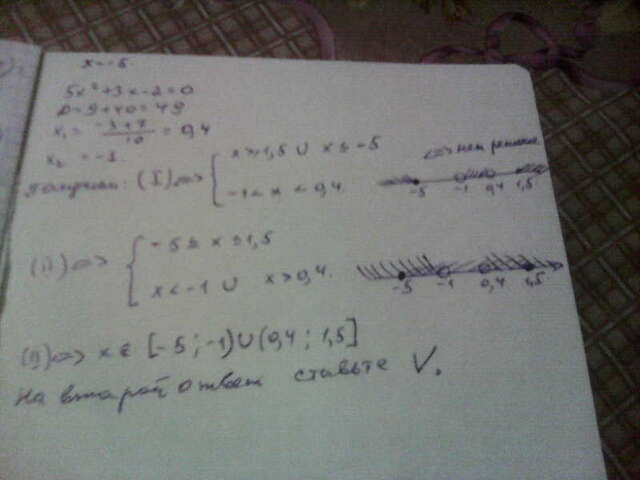 x = -5.
5x² + 3x - 2 = 0
D = 9 + 40 = 49
x₁ = (-3+7)/10 = 0,4
x₂ = -1.
получаем: (I) <=> { x ≥ 1,5 ∪ x ≤ -5
-1 < x < 0,4.
<=> нет решение.
-5 -1 0,4 1,5
(II) <=> { -5 ≤ x ≤ 1,5
x < -1 ∪ x > 0,4.
-5 -1 0,4 1,5
(II) <=> x ∈ [-5; -1) ∪ (0,4; 1,5]
На второй ответ ставьте V.